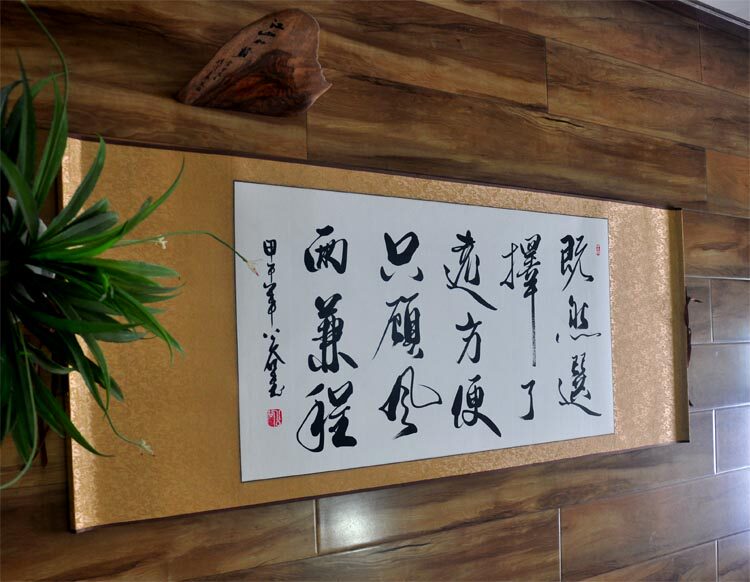 既然選
擇了
遠方便
只顧风
雨兼程
甲午年